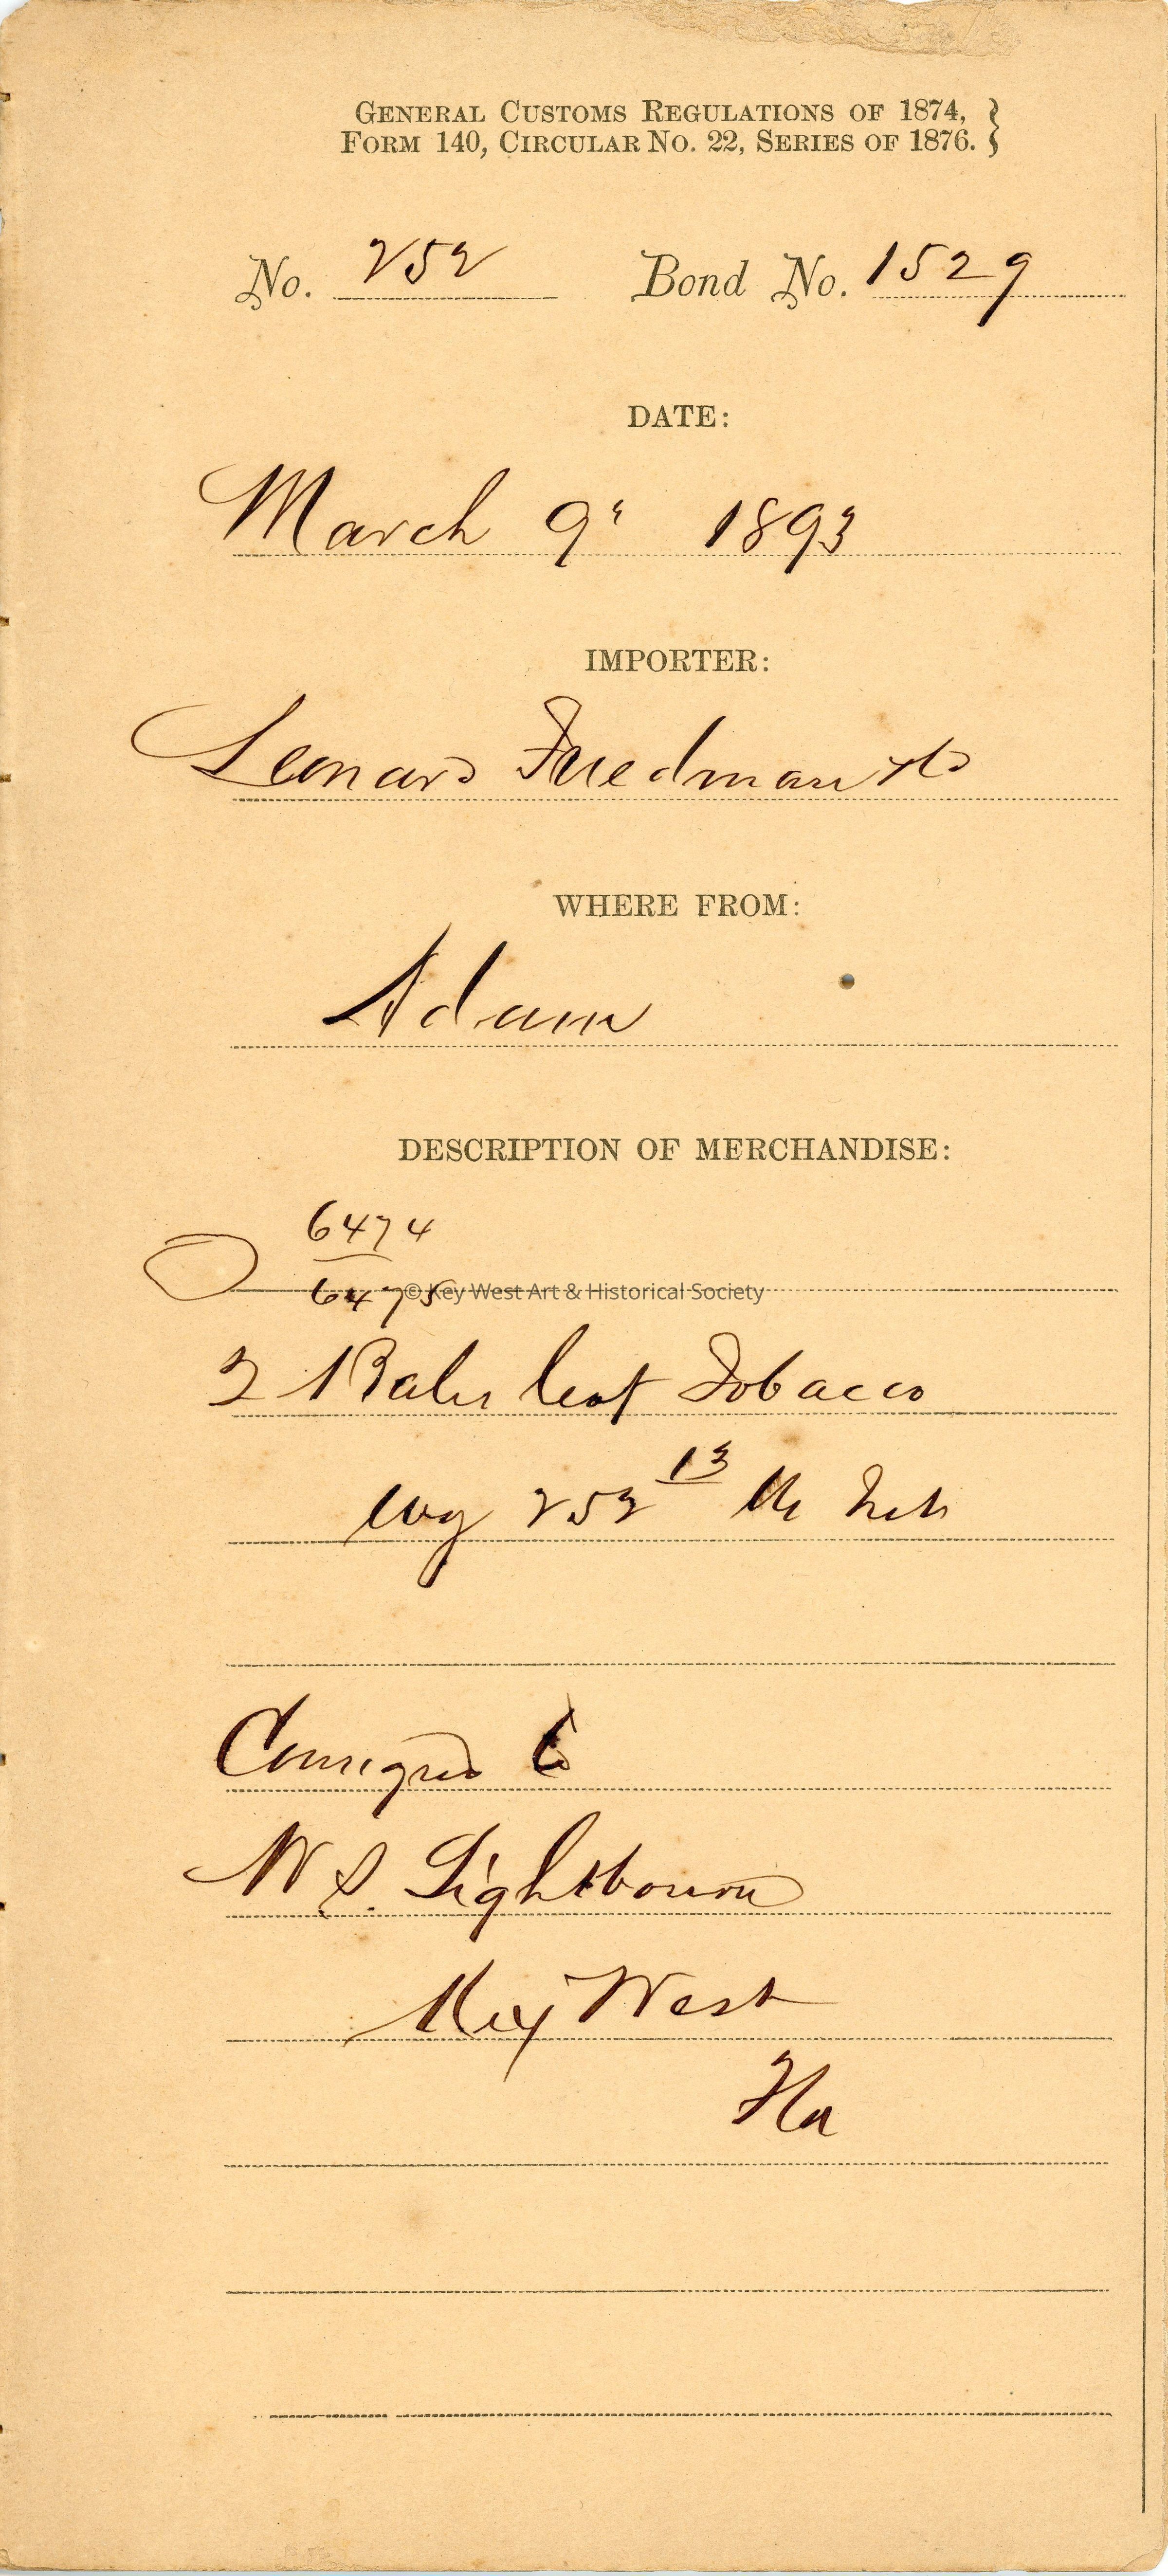 GENERAL CUSTOMS REGULATIONS OF 1874,
FORM 140, CIRCULAR NO. 22, SERIES OF 1876.
No. 252 Bond No. 1529
DATE:
March 9" 1893
IMPORTER:
Leonard Friedman & Co
WHERE FROM:
Adam
DESCRIPTION OF MERCHANDISE:
6474
6475
© Key West Art & Historical Society
2 Bales leaf Tobacco
wg 252 13 lbs
Consigned to
W S. Lightbourn
Key West
Fla